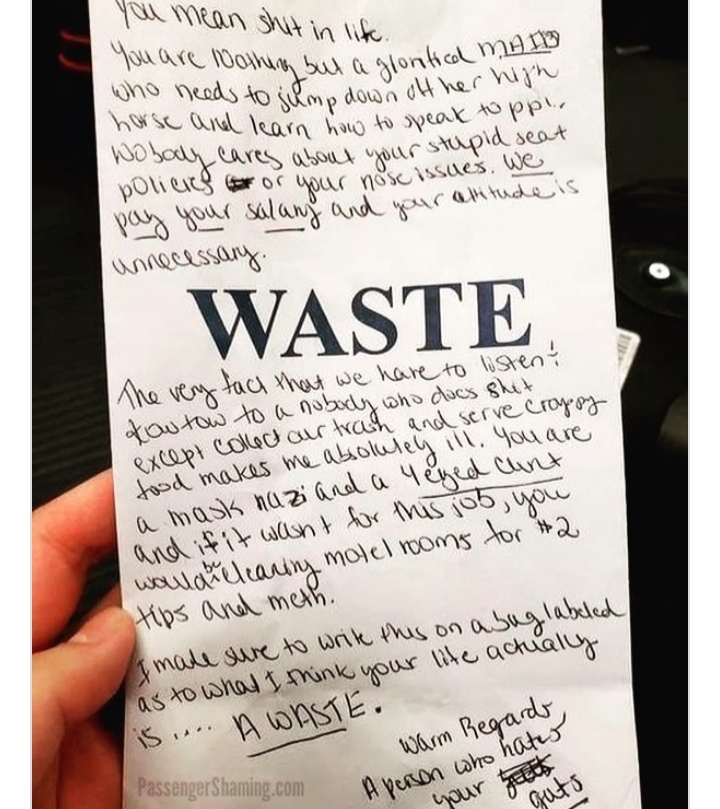 You mean shit in life.
You are noothing but a glorified MAID
who needs to jump down off her high
horse and learn how to speak to ppl.
Nobody cares about your stupid seat
policies or your nose issues. We
pay your salary and your attitude is
unnecessary.
WASTE
The very fact that we have to listen &
kowtow to a nobody who does shit
except collect our trash and serve crappy
food makes me absolutely ill. You are
a mask nazi and a 4 eyed cunt
and if it wasn't for this job, you
would be cleaning motel rooms for #2
tips and meth.
I made sure to write this on a bag labeled
as to what I think your life actually
is .... A WASTE.
Warm Regards
A person who hates
your guts
PassengerShaming.com